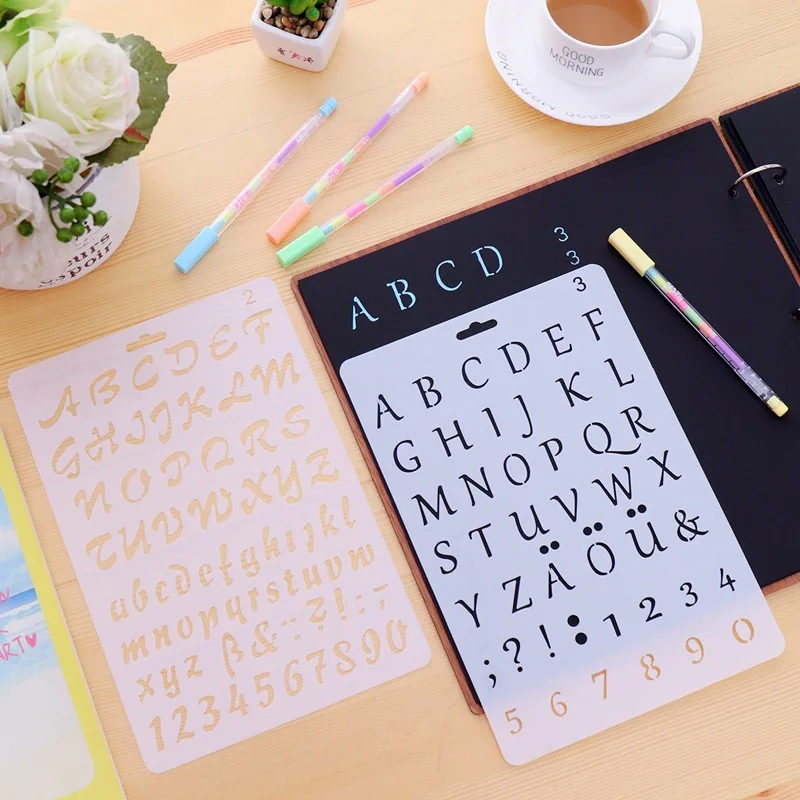 GOOD
MORNING
GOOD MORNING
3
3
A B C D
2
A B C D E F
G H I J K L M
N O P Q R S
T U V W X Y Z
a b c d e f g h i j k l
m n o p q r s t u v w
x y z ß & : : ? ! : -
1 2 3 4 5 6 7 8 9 0
3
A B C D E F
G H I J K L
M N O P Q R
S T U V W X
Y Z Ä Ö Ü &
; ? ! : 1 2 3 4
5 6 7 8 9 0